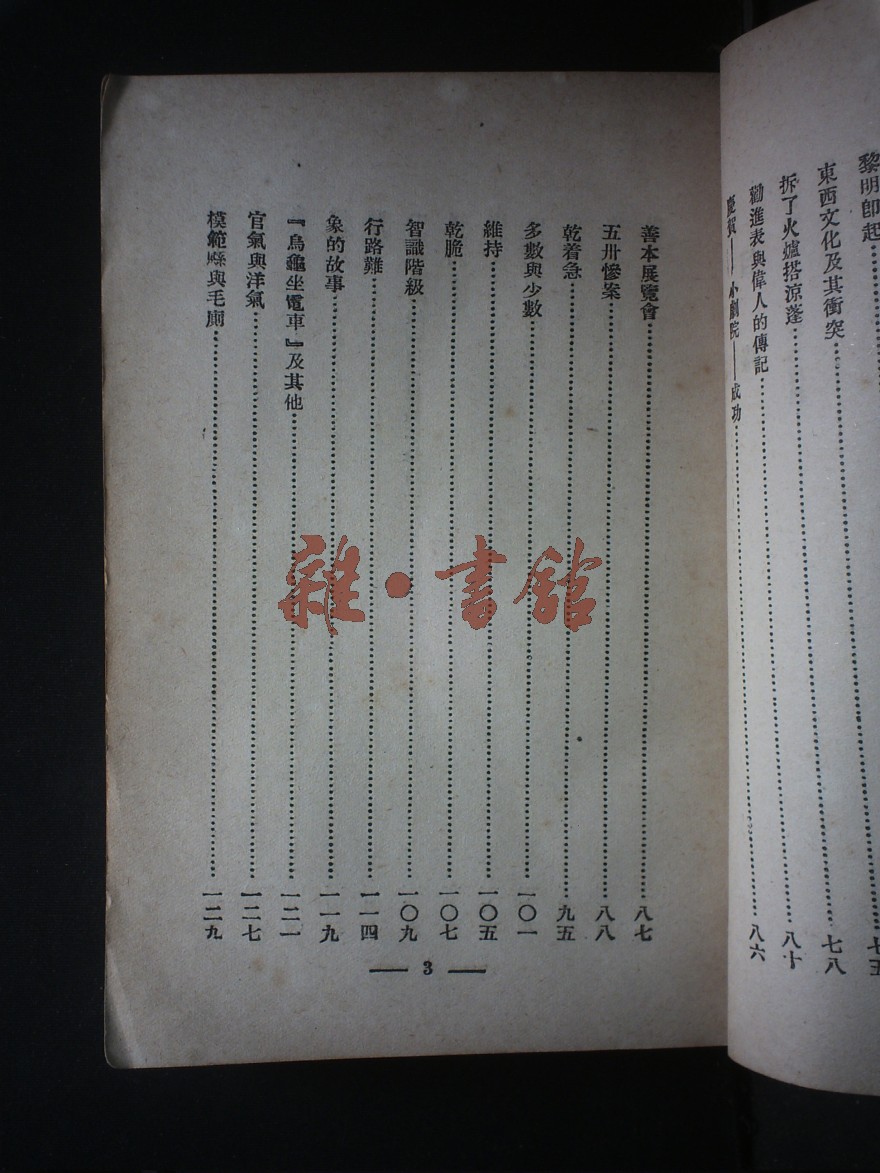 黎明即起……七五
東西文化及其衝突……七八
拆了火爐搭涼蓬……八十
勸進表與偉人的傳記……八六
慶賀——小劇院——成功……
善本展覽會……八七
五卅慘案……八八
乾着急……九五
多數與少數……一〇一
維持……一〇五
乾脆……一〇七
智識階級……一〇九
行路難……一一四
象的故事……一一九
『烏龜坐電車』及其他……一二一
官氣與洋氣……一二七
模範縣與毛廁……一二九
— 3 —
雜·書館